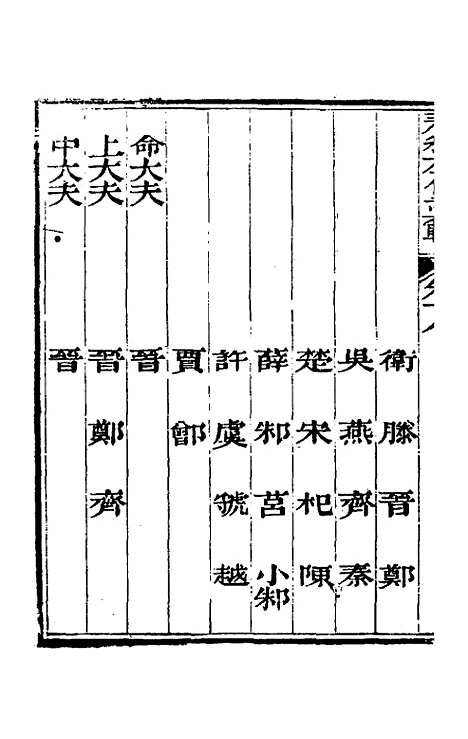 衛 滕 晉 鄭
吳 燕 齊 秦
楚 宋 杞 陳
薛 邾 莒 小邾
許 虞 虢 越
賈 鄫
命大夫 晉
上大夫 晉 鄭 齊
中大夫 晉